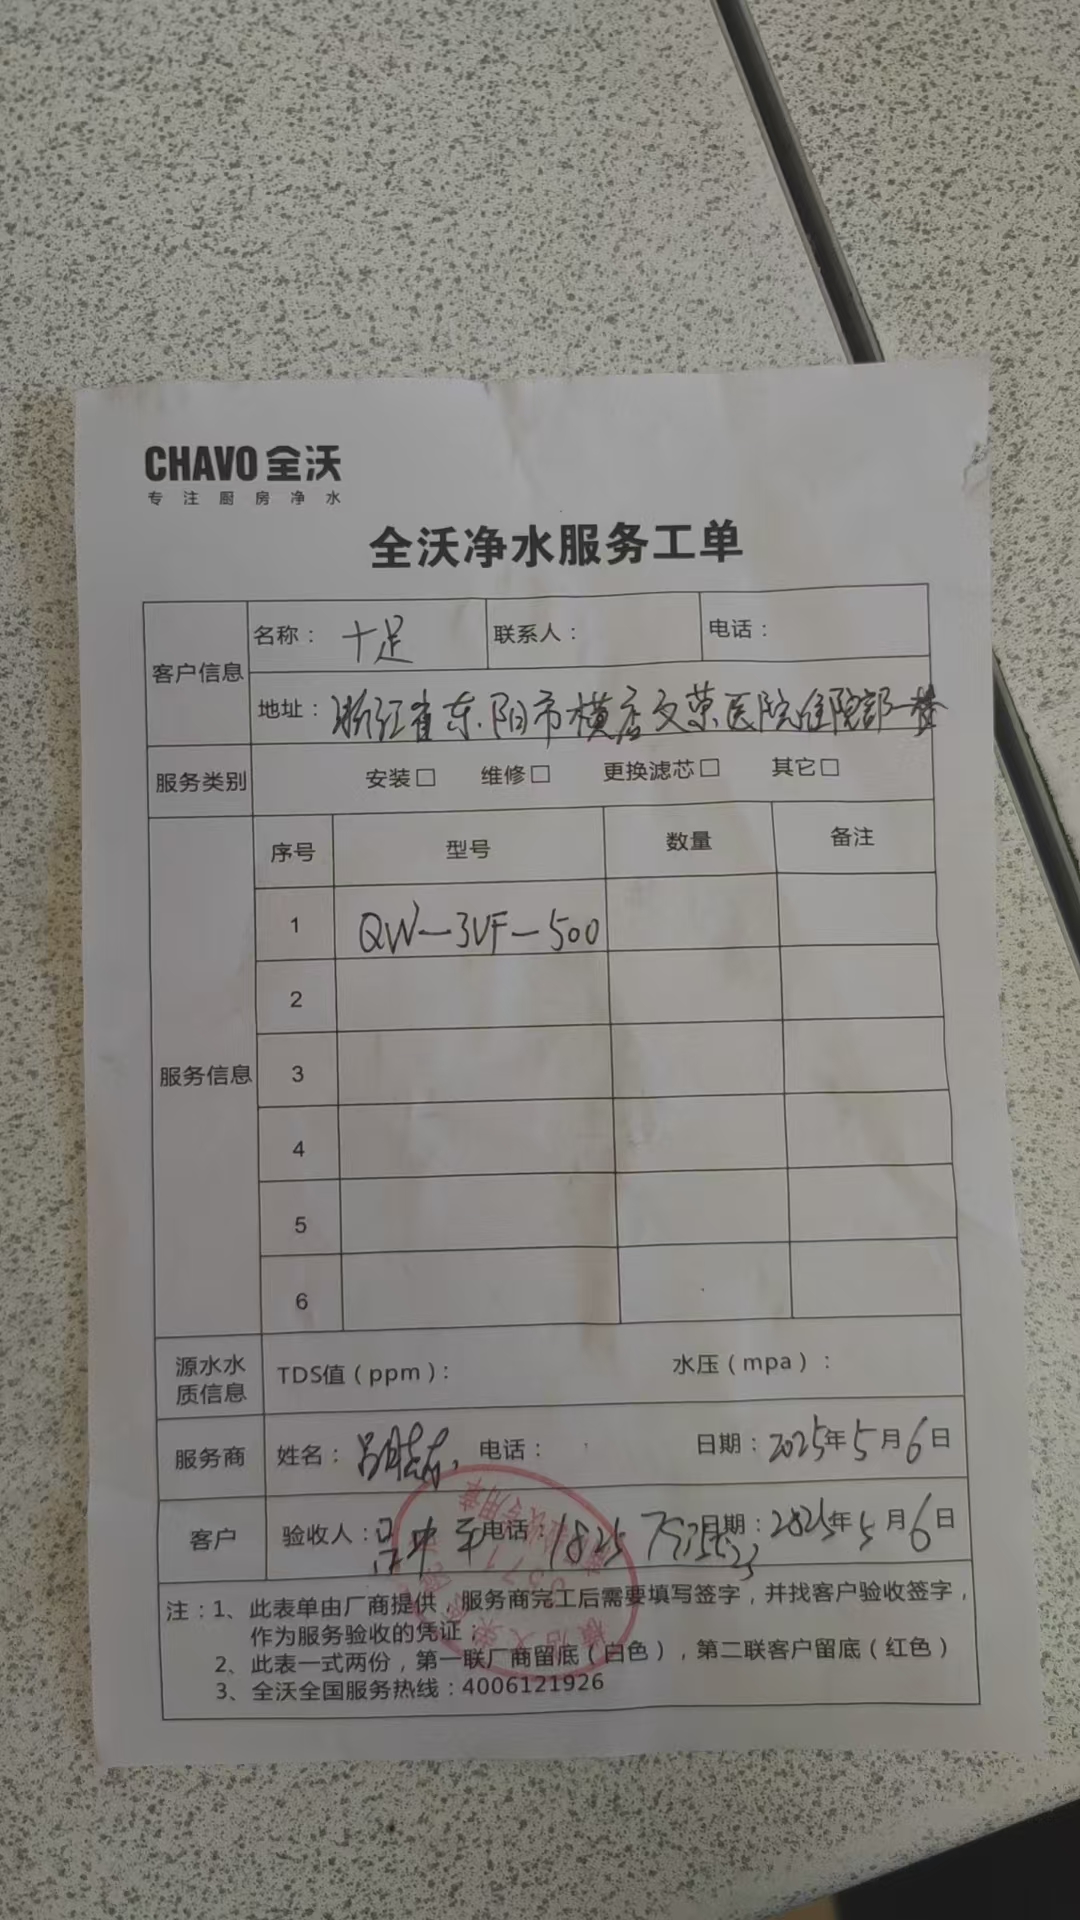 CHAVO 全沃
专注厨房净水
全沃净水服务工单
客户信息
名称： 十足 联系人： 电话：
地址： 浙江省东阳市横店文荣医院住院部一楼
服务类别 安装□ 维修□ 更换滤芯□ 其它□
服务信息
序号 型号 数量 备注
1 QW-3UF-500
2
3
4
5
6
源水水质信息 TDS值（ppm）： 水压（mpa）：
服务商 姓名： 吕 电话： 日期：2025年5月6日
客户 验收人： 电话：1825 日期：2025年5月6日
注：1、此表单由厂商提供，服务商完工后需要填写签字，并找客户验收签字，
作为服务验收的凭证；
2、此表一式两份，第一联厂商留底（白色），第二联客户留底（红色）
3、全沃全国服务热线：4006121926